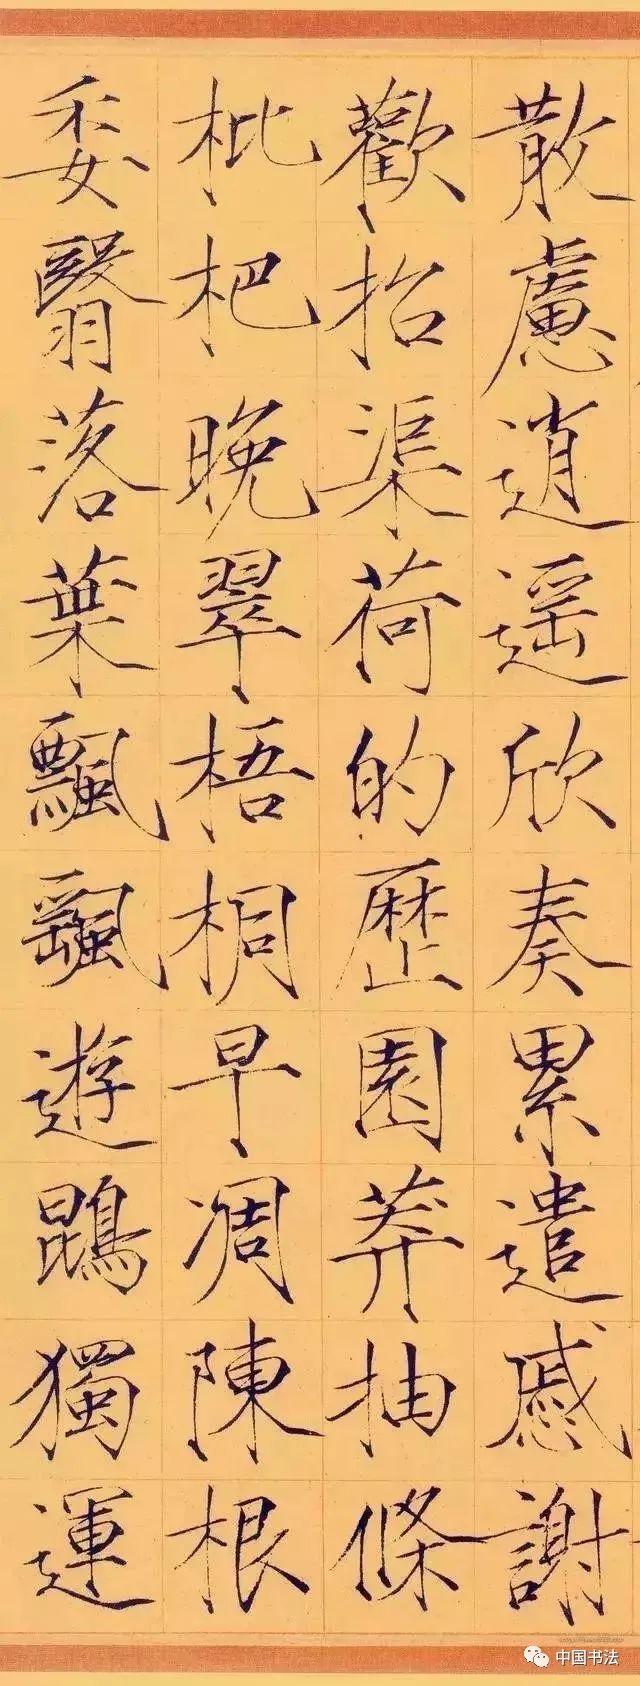 散慮逍遥欣奏累遣慼謝
歡招渠荷的歷園莽抽條
枇杷晚翠梧桐早凋陳根
委翳落葉飄颻遊鵾獨運
中国书法